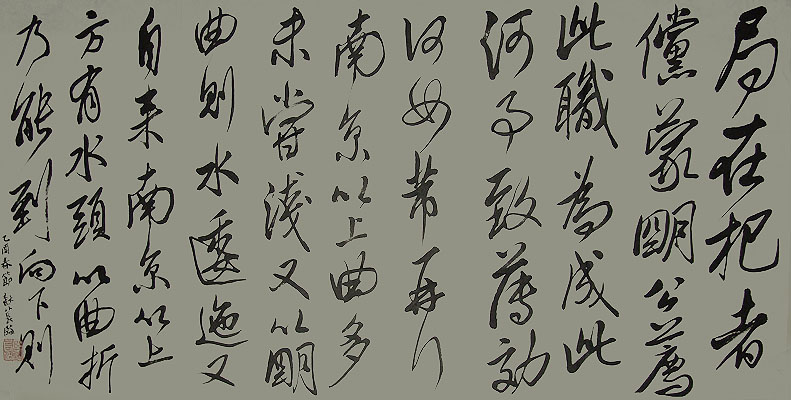 局在杞者
儻蒙明公薦
此職為成此
河事致薄効
何如芾再行
南京以上曲多
未嘗淺又以明
曲則水逶迤又
自來南京以上
方有水頭以曲折
乃能到向下則
乙酉春節臨